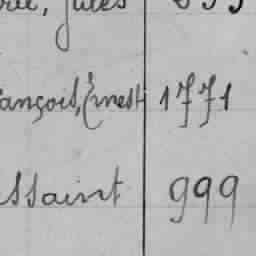 Jules
ançois, Ernest 1771
ssaint 999